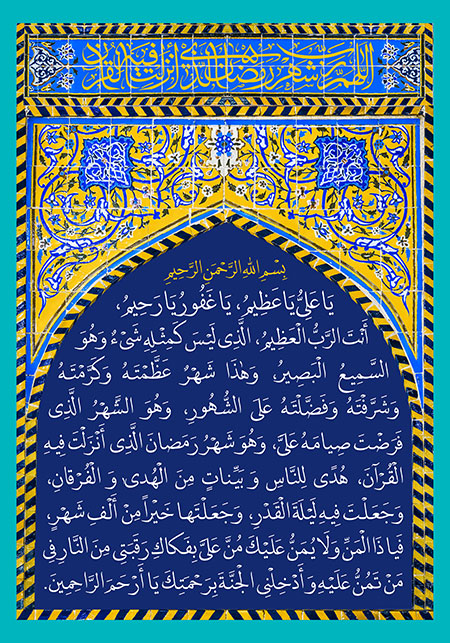 اللهم رب شهر رمضان الذي أنزلت فيه القرآن
بِسْمِ اللهِ الرَّحْمنِ الرَّحيمِ
يَا عَلِيُّ يَا عَظِيمُ، يَا غَفُورُ يَا رَحِيمُ،
أَنْتَ الرَّبُّ الْعَظِيمُ، الَّذِي لَيْسَ كَمِثْلِهِ شَيْءٌ وَهُوَ
السَّمِيعُ الْبَصِيرُ، وَهٰذَا شَهْرٌ عَظَّمْتَهُ وَكَرَّمْتَهُ
وَشَرَّفْتَهُ وَفَضَّلْتَهُ عَلَى الشُّهُورِ، وَهُوَ الشَّهْرُ الَّذِي
فَرَضْتَ صِيامَهُ عَلَيَّ، وَهُوَ شَهْرُ رَمَضانَ الَّذِي أَنْزَلْتَ فِيهِ
الْقُرْآنَ، هُدًى لِلنَّاسِ وَبَيِّناتٍ مِنَ الْهُدى وَالْفُرْقانِ،
وَجَعَلْتَ فِيهِ لَيْلَةَ الْقَدْرِ، وَجَعَلْتَها خَيْراً مِنْ أَلْفِ شَهْرٍ،
فَيا ذَا الْمَنِّ وَلا يُمَنُّ عَلَيْكَ مُنَّ عَلَيَّ بِفَكاكِ رَقَبَتِي مِنَ النَّارِ فِي
مَنْ تَمُنُّ عَلَيْهِ وَأَدْخِلْنِي الْجَنَّةَ بِرَحْمَتِكَ يَا أَرْحَمَ الرَّاحِمِينَ.